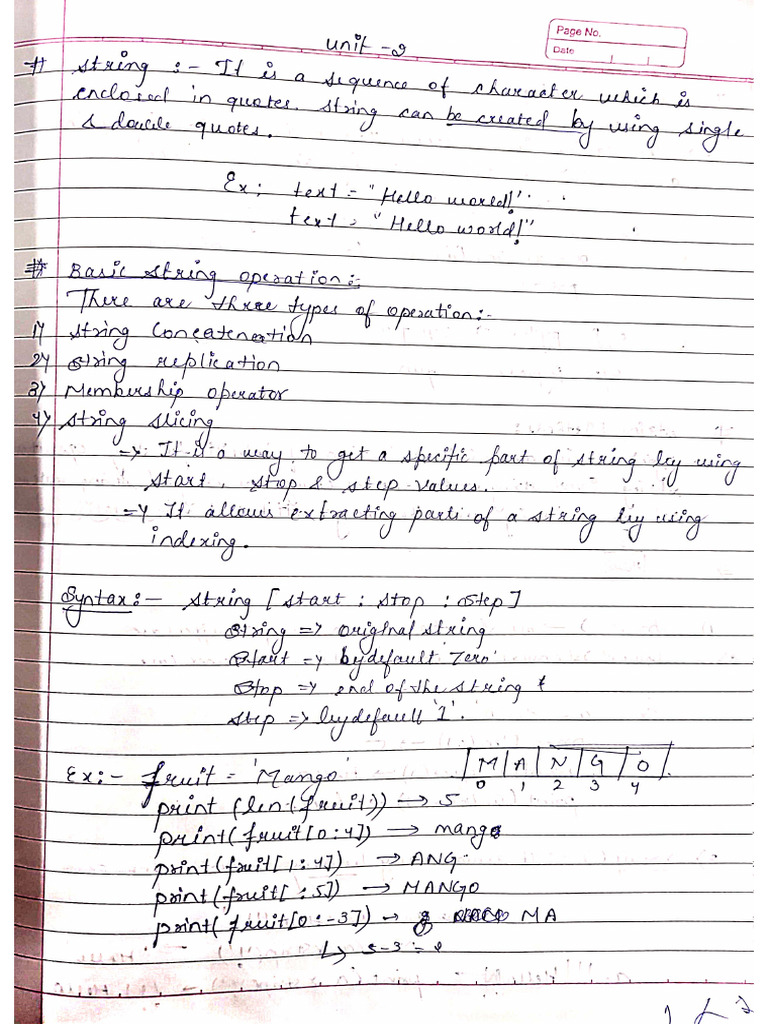 Page No.
Date
Unit - 2
# String :- It is a sequence of character which is
enclosed in quotes. String can be created by using single
& double quotes.
Ex: text = "Hello world!"
text = "Hello world!"
# Basic string operation:-
There are three types of operation:-
1) String Concatenation
2) String replication
3) Membership operator
4) String slicing
=> It is a way to get a specific part of string by using
start, stop & step values.
=> It allows extracting parts of a string by using
indexing.
Syntax:- string [start : stop : step]
String => original string
Start => bydefault 'Zero'
Stop => end of the string
step => bydefault '1'.
Ex:- fruit = 'Mango'
M A N G O
0 1 2 3 4
print (len(fruit)) → 5
print(fruit[0:4]) → mang
print(fruit[1:4]) → ANG
print(fruit[ :5]) → MANGO
print(fruit[0:-3]) → MA
↳ 5-3 = 2